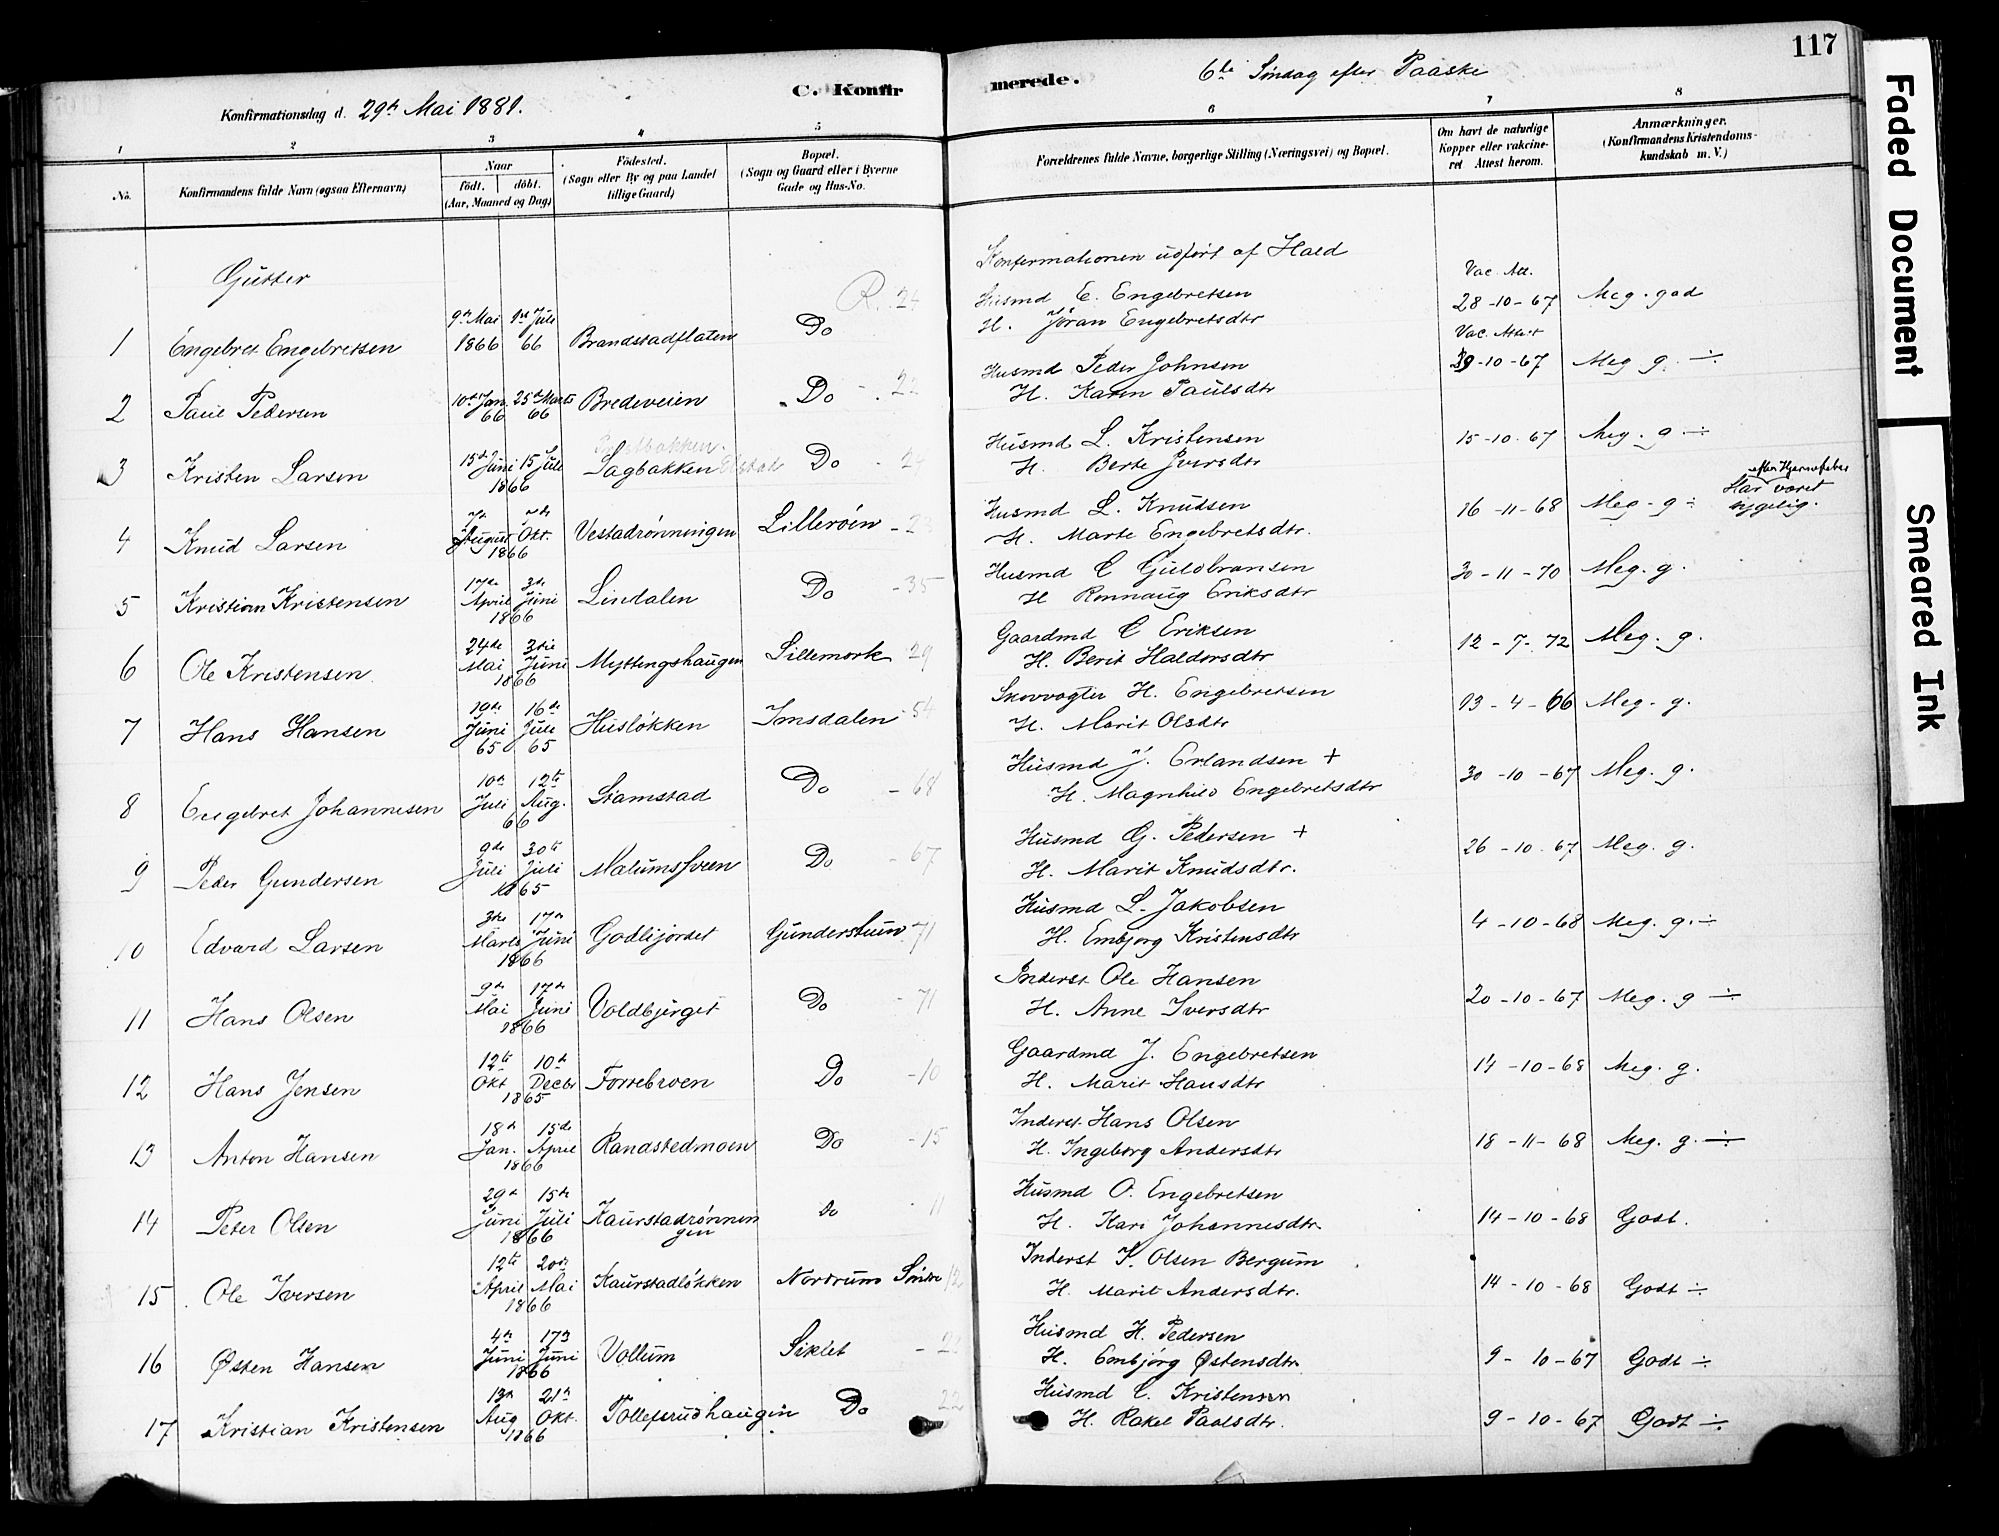 117
C. Konfirmerede.
6te Søndag efter Paaske
Konfirmationsdag d. 29de Mai 1881.
1 2 3 4 5 6 7 8
No. Konfirmandens fulde Navn (ogsaa Efternavn) Naar født. døbt. (Aar, Maaned og Dag) Fødested. (Sogn eller By og paa Landet tillige Gaard) Bopæl. (Sogn og Gaard eller i Byerne Gade og Hus-No. Forældrenes fulde Navne, borgerlige Stilling (Næringsvei) og Bopæl. Om havt de naturlige Kopper eller vakcineret Attest herom. Anmærkninger. (Konfirmandens Kristendomskundskab m. V.)
Gutter
Konfirmationen udført af Hald
1 Engebret Engebretsen 9de Mai 1866 1ste Juli 66 Brandstadflaten Do Husmd E. Engebretsen H. Jøran Engebretsdtr Vac. Att. 28-10-67 Meg. god
2 Paul Pedersen 10de Jan. 66 25de Marts 66 Bredeveien Do - 22 Husmd Peder Johnsen H. Karen Paulsdtr Vac. Attest 29-10-67 Meg g. ÷
3 Kristen Larsen 15de Juni 15 Juli 1866 Sagbakken Do Husmd L. Kristensen H. Berte Iversdtr 15-10-67 Meg. g ÷
4 Knud Larsen August Okt. 1866 Vestadrønningen Lillerøen - 23 Husmd L. Knudsen H. Marte Engebretsdtr. 16-11-68 Meg. g ÷ Har været efter Hjernefeber sygelig.
5 Kristian Kristensen 17de April 3de Juni 1866 Lindalen Do - 35 Husmd C Guldbransen H Ronnaug Eriksdtr 30-11-70 Meg. g.
6 Ole Kristensen 24de Mai 3die Juni 1866 Myttingshaugen Lillemork 29 Gaardmd C Eriksen H. Berit Haldorsdtr 12-7-72 Meg. g.
7 Hans Hansen 19de Juni 65 16de Juli 65 Husløkken Imsdalen - 54 Skovvogter H. Engebretsen H. Marit Olsdtr 13-4-66 Meg. g.
8 Engebret Johannesen 10de Juli 12te Aug. 66 Stamstad Do - 68 Husmd J. Erlandsen + H. Magnhild Engebretsdtr 30-10-67 Meg. g.
9 Peder Gundersen 9de Juli 30te Juli 1865 Malumsveen Do - 67 Husmd G. Pedersen + H. Marit Knudsdtr. 26-10-67 Meg. g.
10 Edvard Larsen 3die Marts 17de Juni 1866 Godlijordet Gunderstuen 71 Husmd L. Jakobsen H. Embjørg Kristensdtr 4-10-68 Meg. g. ÷
11 Hans Olsen 9de Mai 17de Juni 1866 Voldbjørget Do - 71 Inderst Ole Hansen H. Anne Iversdtr 20-10-67 Meg. g ÷
12 Hans Jensen 12te Okt 10de Decbr 1865 Forrebroen Do - 10 Gaardmd J. Engebretsen H. Marit Hansdtr 14-10-68 Meg. g.
13 Anton Hansen 18de Jan. 15de April 1866 Randstedmoen Do - 15 Inderst Hans Olsen H. Ingeborg Andersdtr 18-11-68 Meg. g. ÷
14 Peter Olsen 29de Juni 15de Juli 1866 Kaurstadrønnengen Do - 11 Husmd O. Engebretsen H. Kari Johannesdtr. 14-10-68 Godt.
15 Ole Iversen 12te April 20de Mai 1866 Kaurstadløkken Nordrum Søndre 12 Inderst I. Olsen Bergum H. Marit Andersdtr. 14-10-68 Godt ÷
16 Østen Hansen 4de Juni 17de Juni 1866 Vollum Siklet - 22 Husmd H. Pedersen H. Embjørg Østensdtr 9-10-67 Godt ÷
17 Kristian Kristensen 13de Aug 21de Okt. 1866 Tollefsrudhaugen Do 22 Husmd C. Kristensen H. Rakel Paulsdtr. 9-10-67 Godt ÷
Faded Document
Smeared Ink